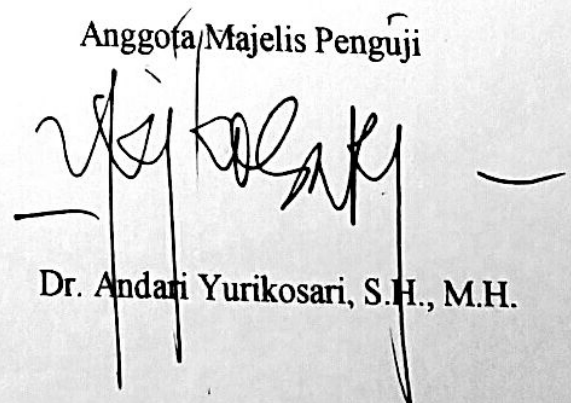 Anggota Majelis Penguji
Dr. Andari Yurikosari, S.H., M.H.